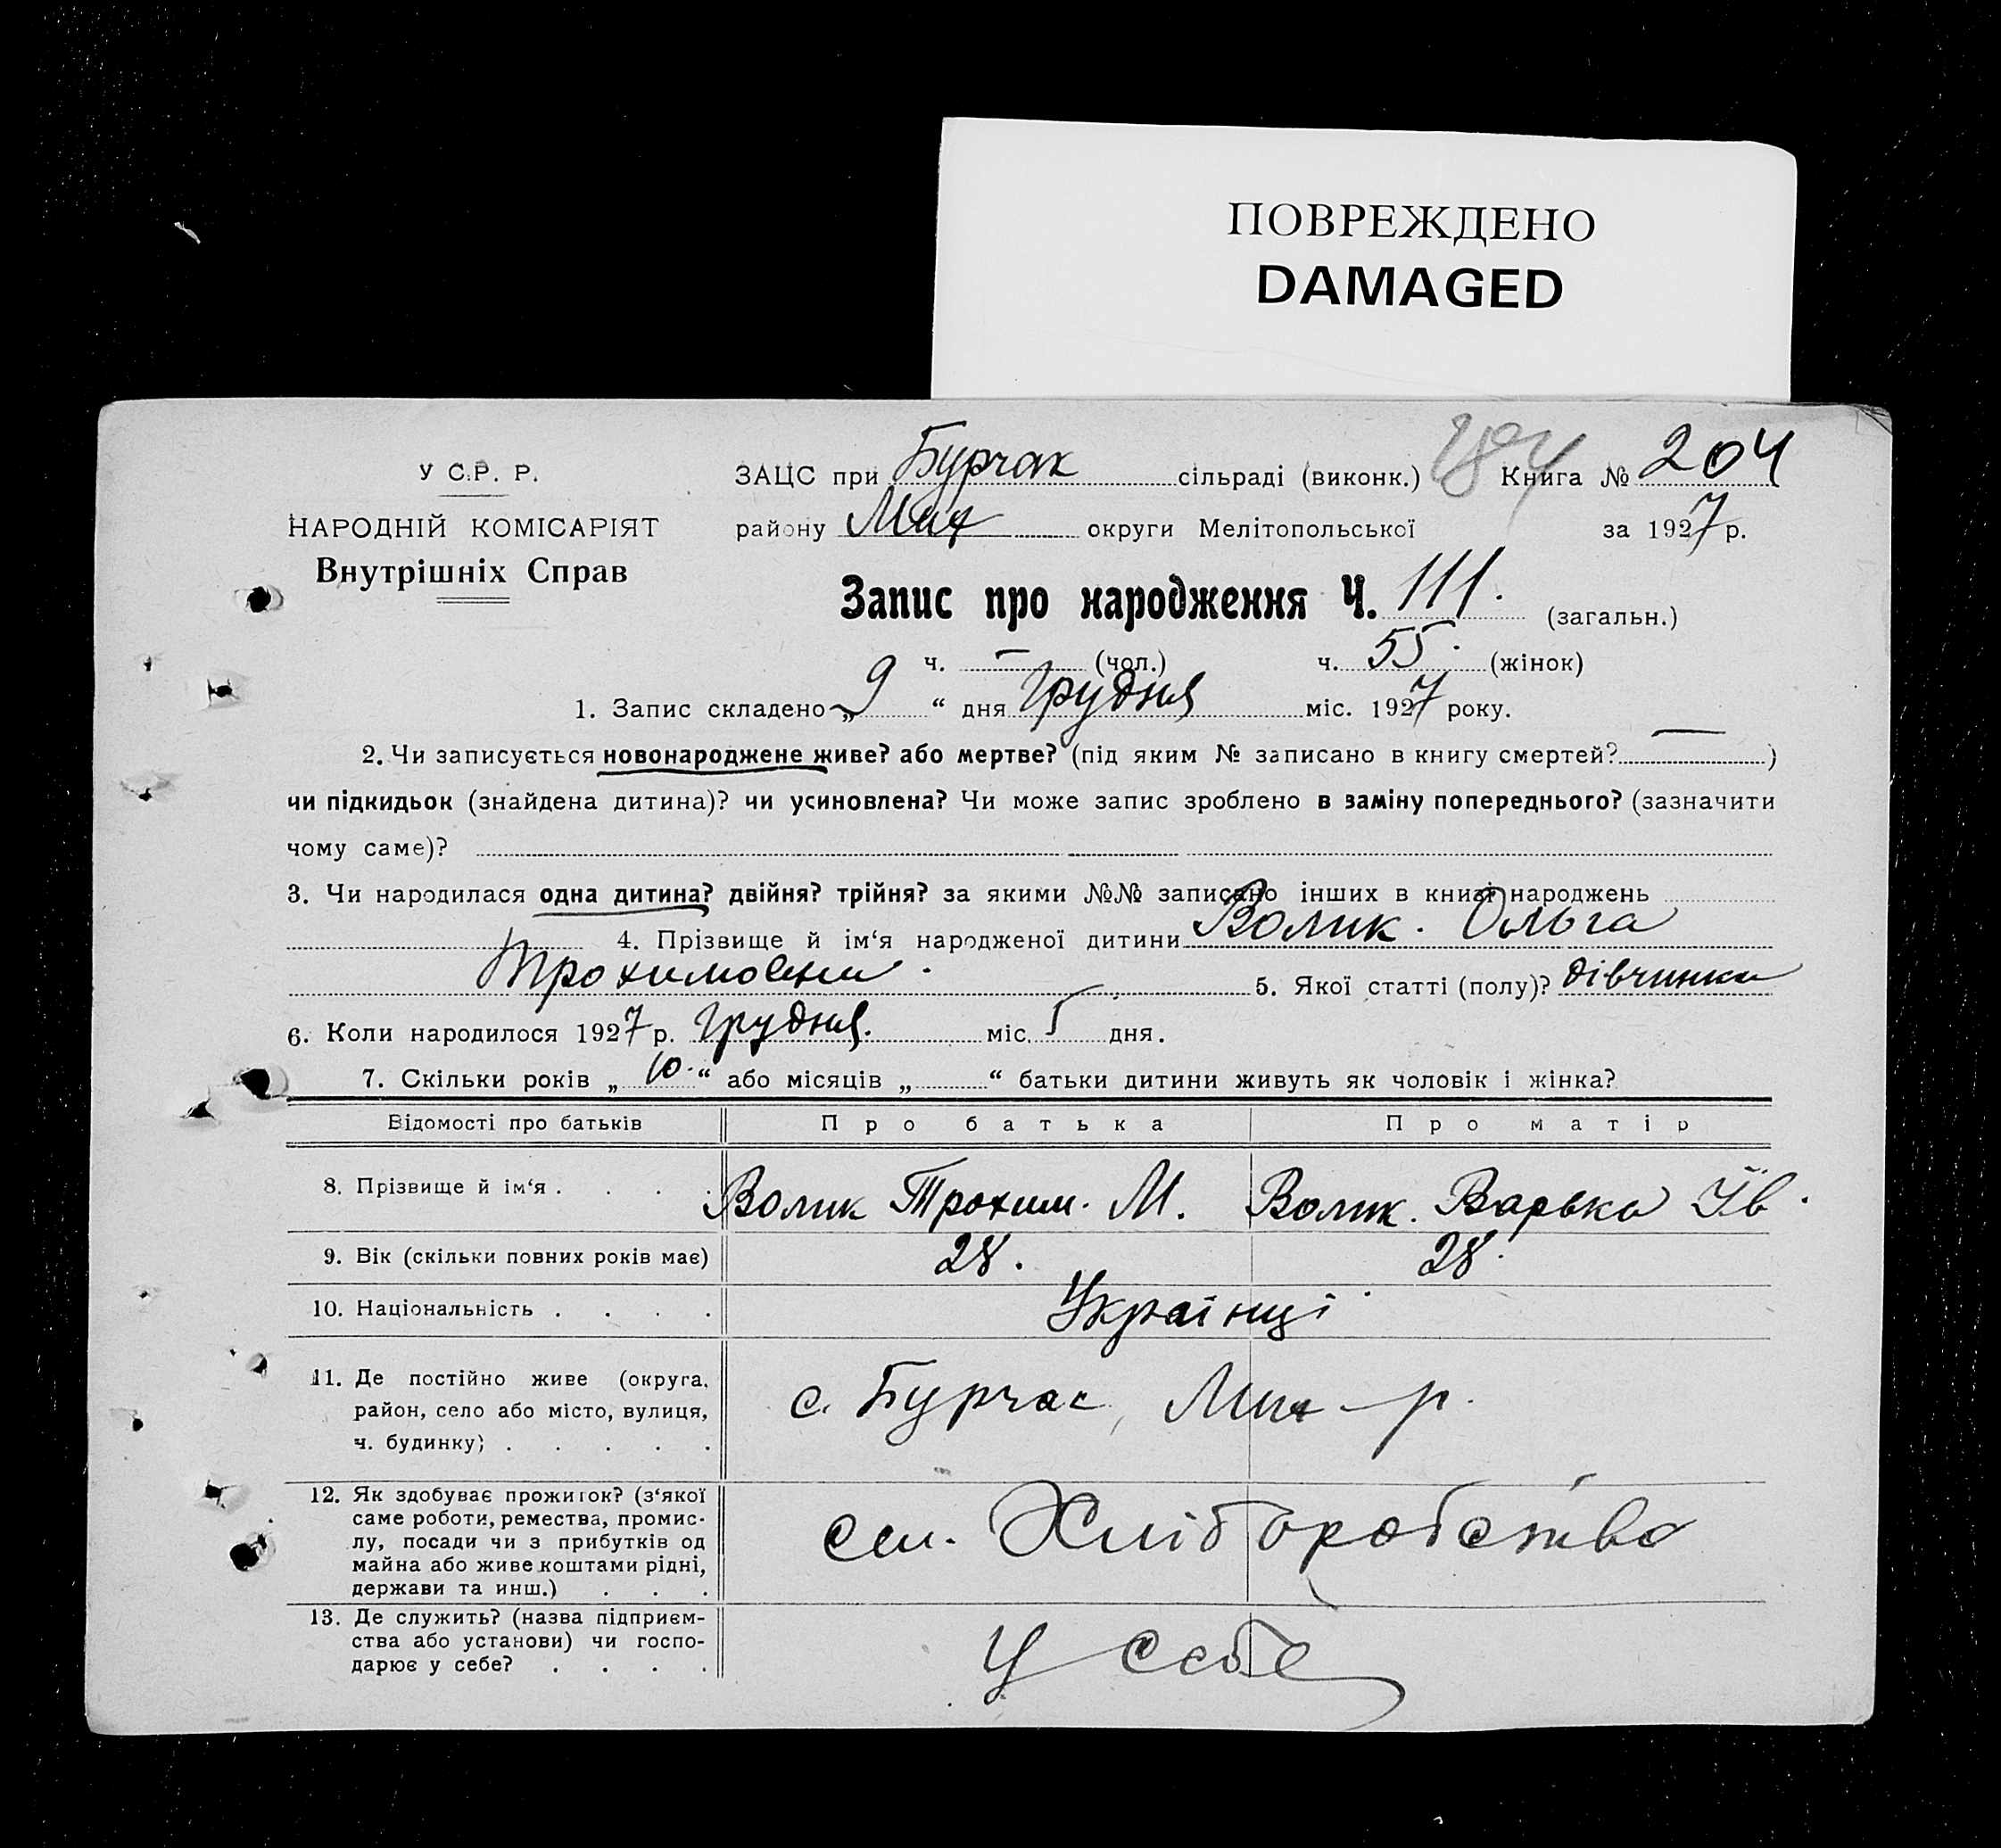 ПОВРЕЖДЕНО
DAMAGED
У С.Р. Р.
НАРОДНІЙ КОМІСАРІЯТ
Внутрішніх Справ
ЗАЦС при Бурчак сільраді (виконк.) 184 Книга № 204
району Мих округи Мелітопольської за 1927 р.
Запис про народження Ч. 111. (загальн.)
ч. — (чол.) ч. 55. (жінок)
1. Запис складено „ 9 “ дня Грудня міс. 1927 року.
2. Чи записується новонароджене живе? або мертве? (під яким № записано в книгу смертей? — )
чи підкидьок (знайдена дитина)? чи усиновлена? Чи може запис зроблено в заміну попереднього? (зазначити
чому саме)?
3. Чи народилася одна дитина? двійня? трійня? за якими №№ записано інших в книзі народжень
4. Прізвище й ім‘я народженої дитини Волик. Ольга
Трохимовни. 5. Якої статті (полу)? дівчинка
6. Коли народилося 1927 р. Грудня. міс. 5 дня.
7. Скільки років „ 10. “ або місяців „ “ батьки дитини живуть як чоловік і жінка?
Відомості про батьків Про батька Про матір
8. Прізвище й ім‘я . . . . Волик Трохим. М. Волик. Варька Ів.
9. Вік (скільки повних років має) 28. 28.
10. Національність . . . . Українці
11. Де постійно живе (округа,
район, село або місто, вулиця,
ч. будинку) . . . . .
с. Бурчак, Мих р.
12. Як здобуває прожиток? (з‘якої
саме роботи, ремества, промис-
лу, посади чи з прибутків од
майна або живе коштами рідні,
держави та инш.) . . .
сел. Хліборобство
13. Де служить? (назва підприєм-
ства або установи) чи госпо-
дарює у себе? . . . .
У себе